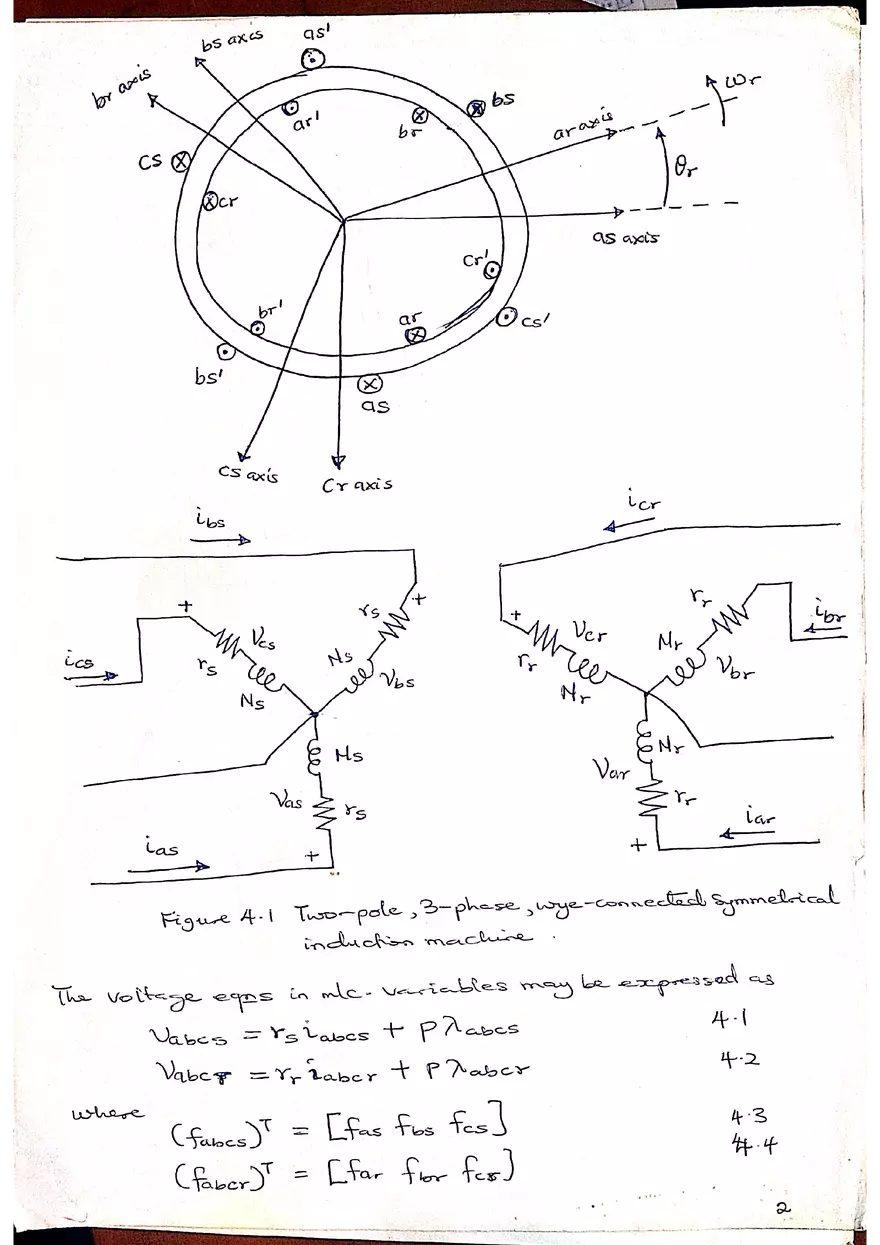 as'
bs axis
br axis
ωr
bs
ar'
br
ar axis
cs
θr
cr
as axis
cr'
br'
ar
cs'
bs'
as
cs axis
Cr axis
ibs
icr
+
rs
+
rr
+
ics
Vcs
rs
Ns
Ns
Vbs
Vcr
rr
Nr
Nr
Vbr
ibr
Ns
Vas
rs
Nr
Var
rr
ias
+
+
iar
Figure 4.1 Two-pole, 3-phase, wye-connected symmetrical
induction machine.
The voltage eqns in m/c. variables may be expressed as
Vabcs = rs iabcs + pλabcs 4.1
Vabcr = rr iabcr + pλabcr 4.2
where
(fabcs)ᵀ = [fas fbs fcs] 4.3
(fabcr)ᵀ = [far fbr fcr] 4.4
2